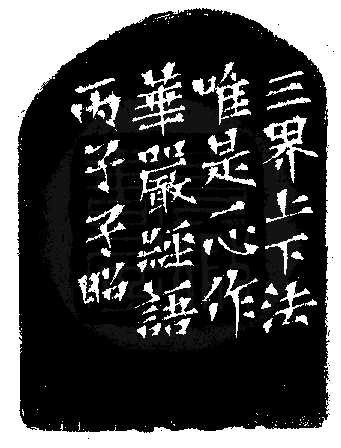 三界上下法
唯是一心作
華嚴經語
丙子子昭